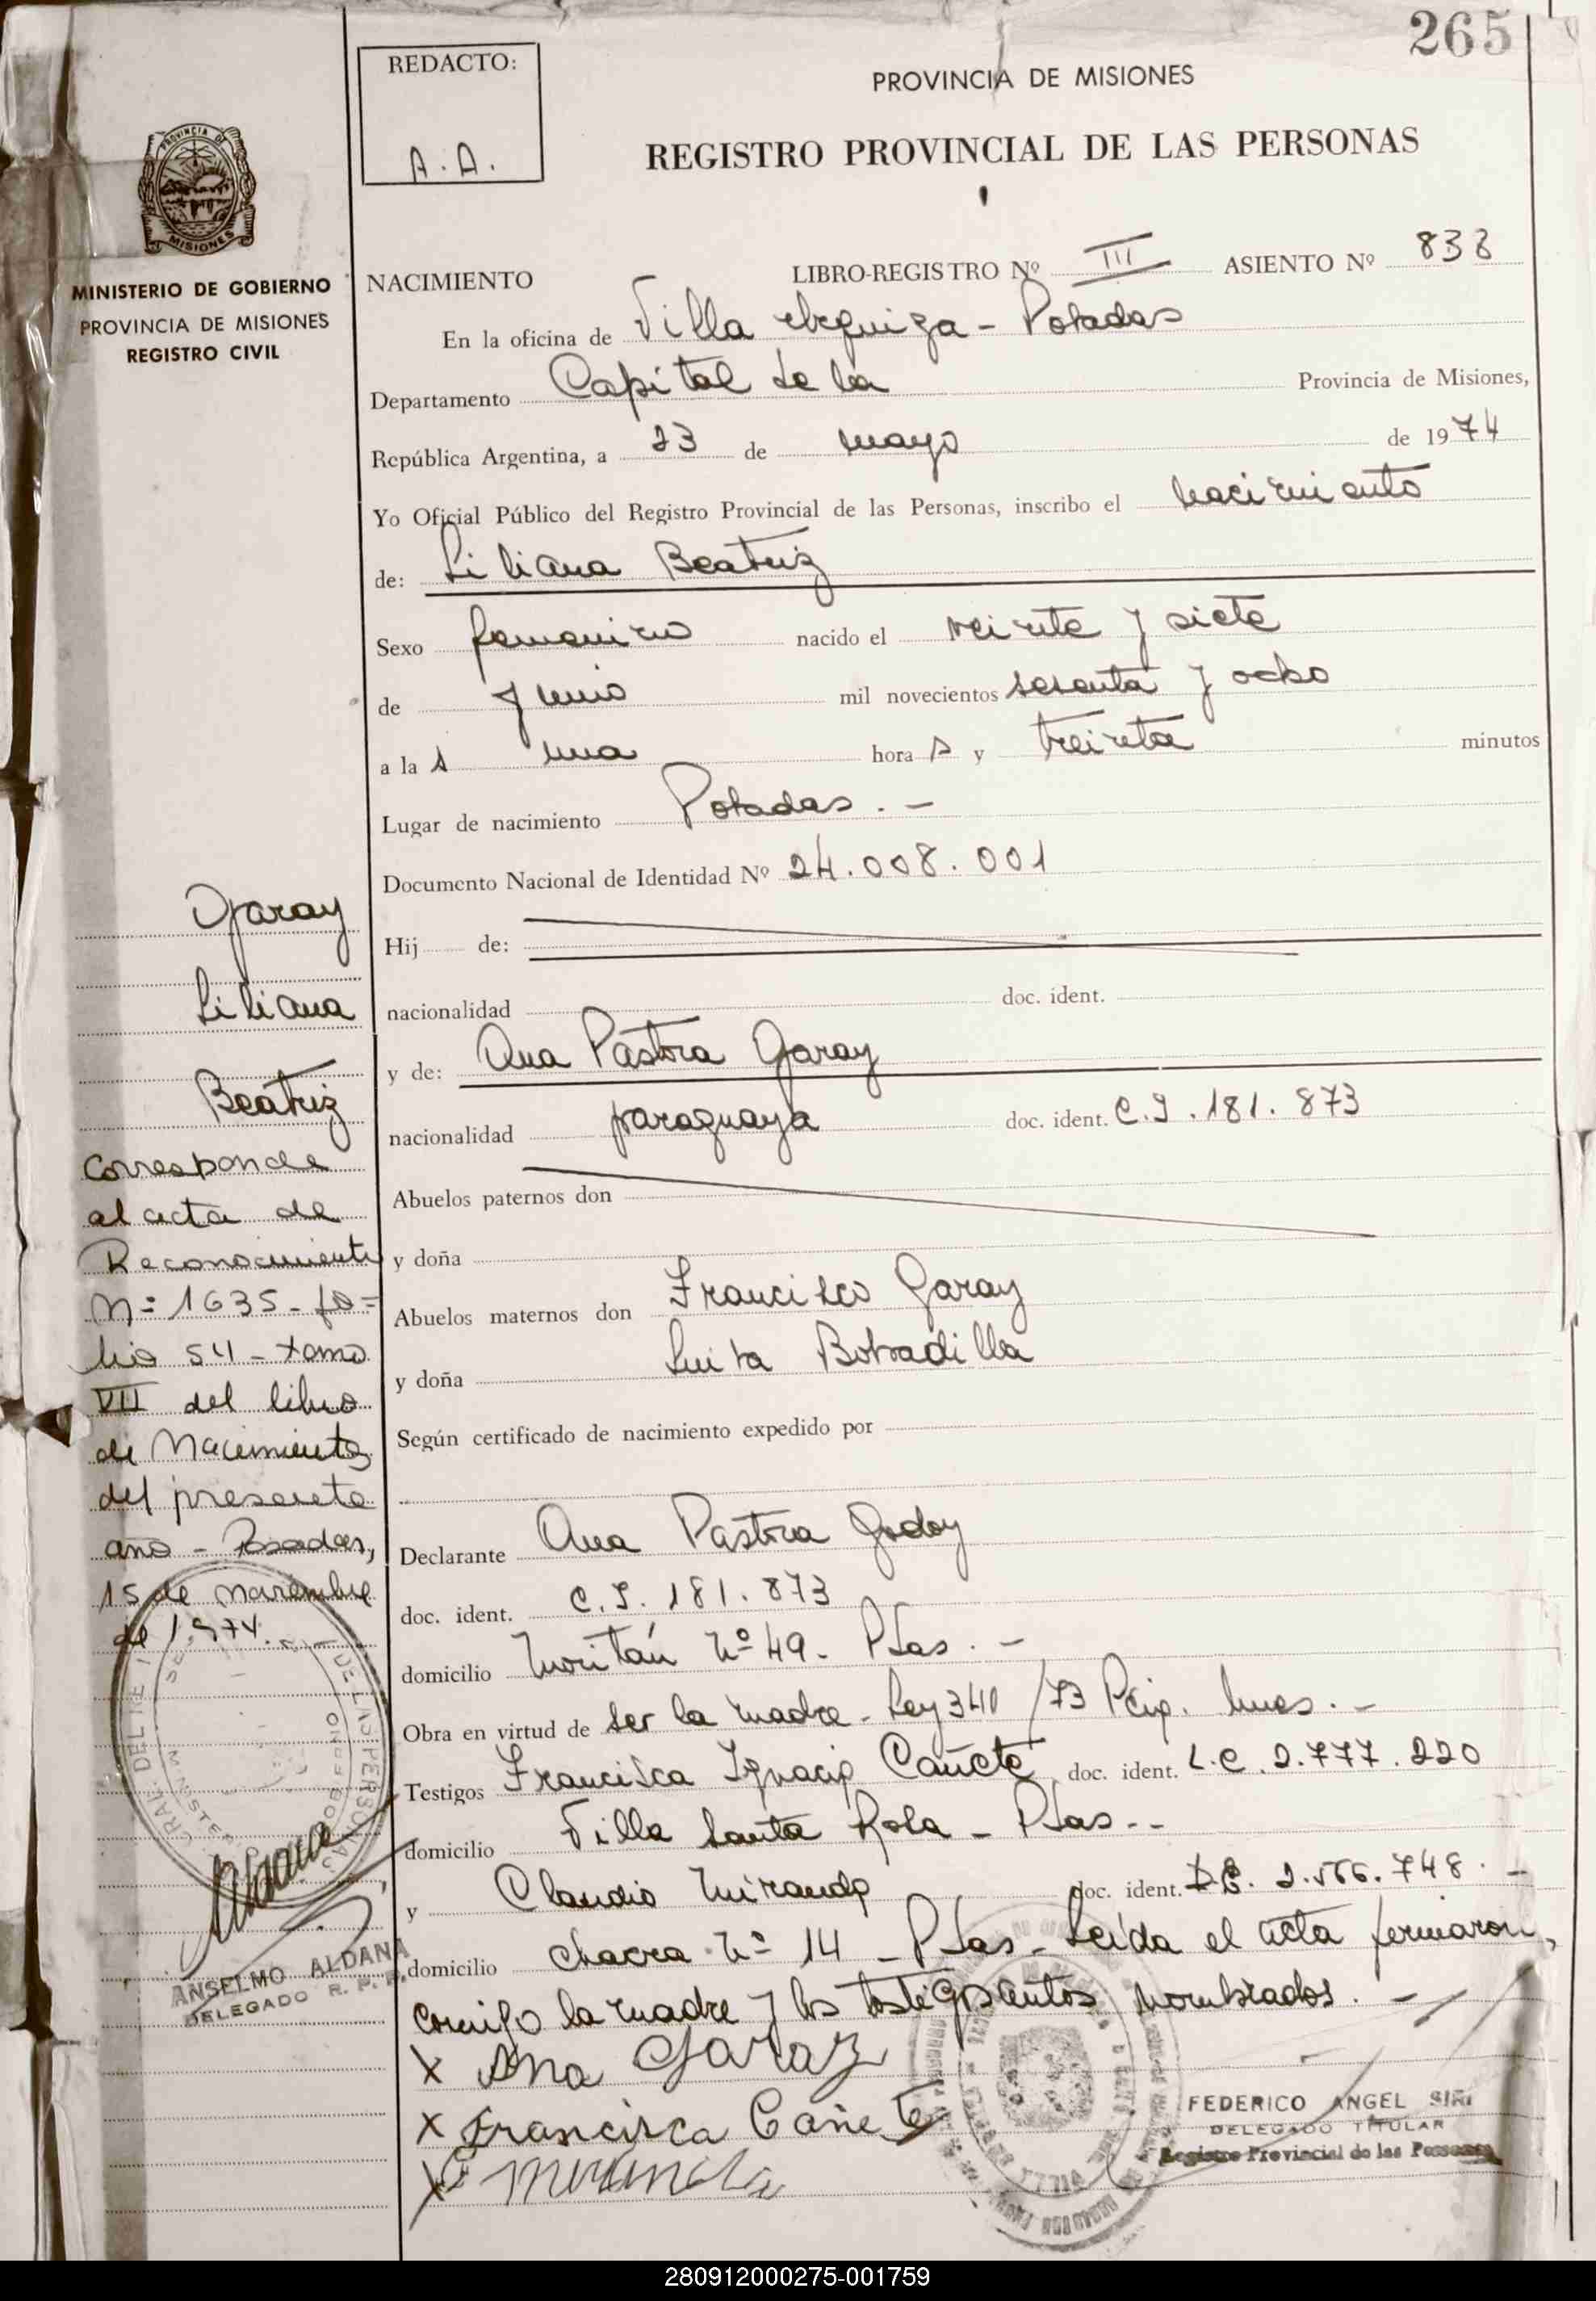 265
REDACTO:
A.A.
PROVINCIA DE MISIONES
REGISTRO PROVINCIAL DE LAS PERSONAS
PROVINCIA DE
MISIONES
MINISTERIO DE GOBIERNO
PROVINCIA DE MISIONES
REGISTRO CIVIL
NACIMIENTO LIBRO-REGISTRO Nº III ASIENTO Nº 838
En la oficina de Villa Urquiza - Posadas
Departamento Capital de la Provincia de Misiones,
República Argentina, a 23 de mayo de 1974
Yo Oficial Público del Registro Provincial de las Personas, inscribo el nacimiento
de: Liliana Beatriz
Sexo femenino nacido el veinte y siete
de Junio mil novecientos sesenta y ocho
a la s una hora s y treinta minutos
Lugar de nacimiento Posadas. -
Documento Nacional de Identidad Nº 24.008.001
Hij de:
nacionalidad doc. ident.
y de: Ana Pastora Garay
nacionalidad paraguaya doc. ident. C.I. 181.873
Abuelos paternos don
y doña
Abuelos maternos don Francisco Garay
y doña Luisa Bobadilla
Según certificado de nacimiento expedido por
Declarante Ana Pastora Godoy
doc. ident. C.I. 181.873
domicilio Moritán Nº 49 - Psas. -
Obra en virtud de ser la madre - Ley 340/73 Pcia. Mnes. -
Testigos Francisca Ignacia Cañete doc. ident. L.C. 2.777.220
domicilio Villa Santa Rosa - Psas. -
y Claudio Miranda doc. ident. 2.566.748. -
domicilio chacra Nº 14 - Psas - Leída el acta firmaron,
conmigo la madre y los testigos antes nombrados. -
x Ana Garay
x Francisca Cañete
x C Miranda
FEDERICO ANGEL SIRI
DELEGADO TITULAR
Registro Provincial de las Personas
Garay
Liliana
Beatriz
Corresponde
al acta de
Reconocimiento
Nº 1635 - fo=
lio 54 - tomo
VII del libro
de Nacimientos
del presente
año - Posadas,
15 de noviembre
de 1.974.
ANSELMO ALDANA
DELEGADO R. P. P.
280912000275-001759